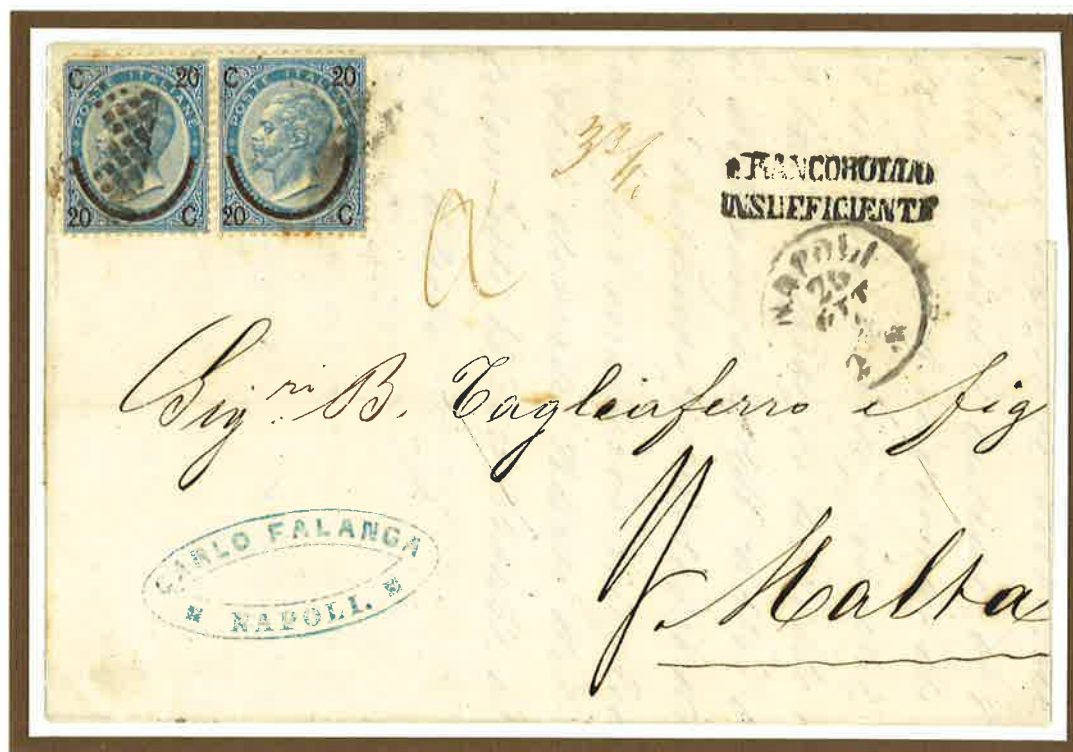 C 20
POSTE ITALIANE
20 C
C 20
POSTE ITALIANE
20 C
3¾
a
FRANCOBOLLO
INSUFFICIENTE
NAPOLI
Sig.ri B. Tagliaferro e fig
p. Malta
CARLO FALANGA
NAPOLI.